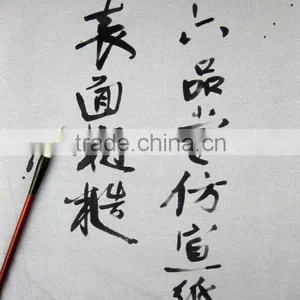 六品堂仿宣纸
表面粗糙
trade.china.com